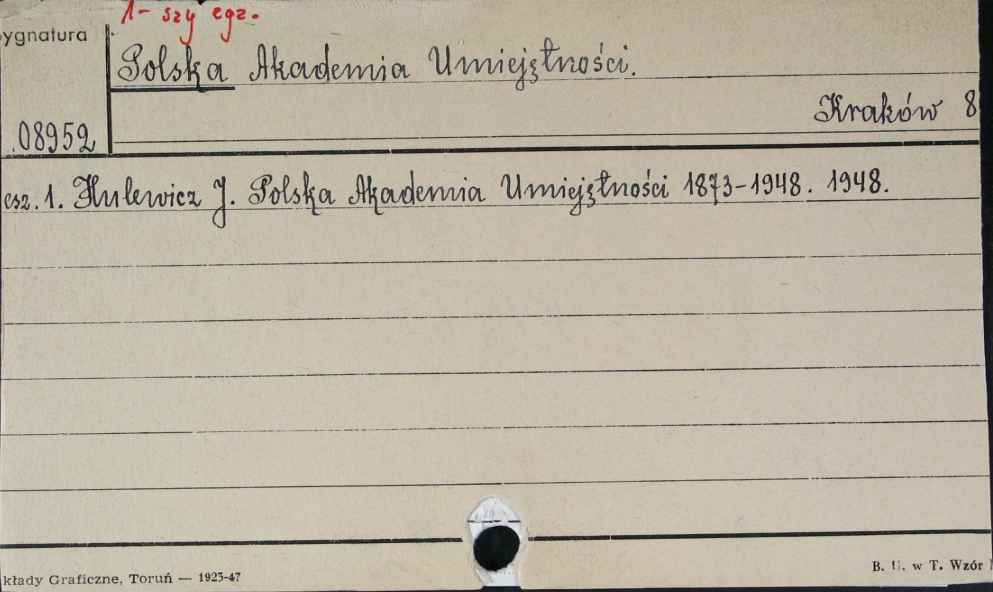 1-szy egz.
ygnatura
Polska Akademia Umiejętności.
Kraków 8
08952
csz. 1. Hulewicz J. Polska Akademia Umiejętności 1873-1948. 1948.
kłady Graficzne, Toruń — 1923-47
B. U. w T. Wzór